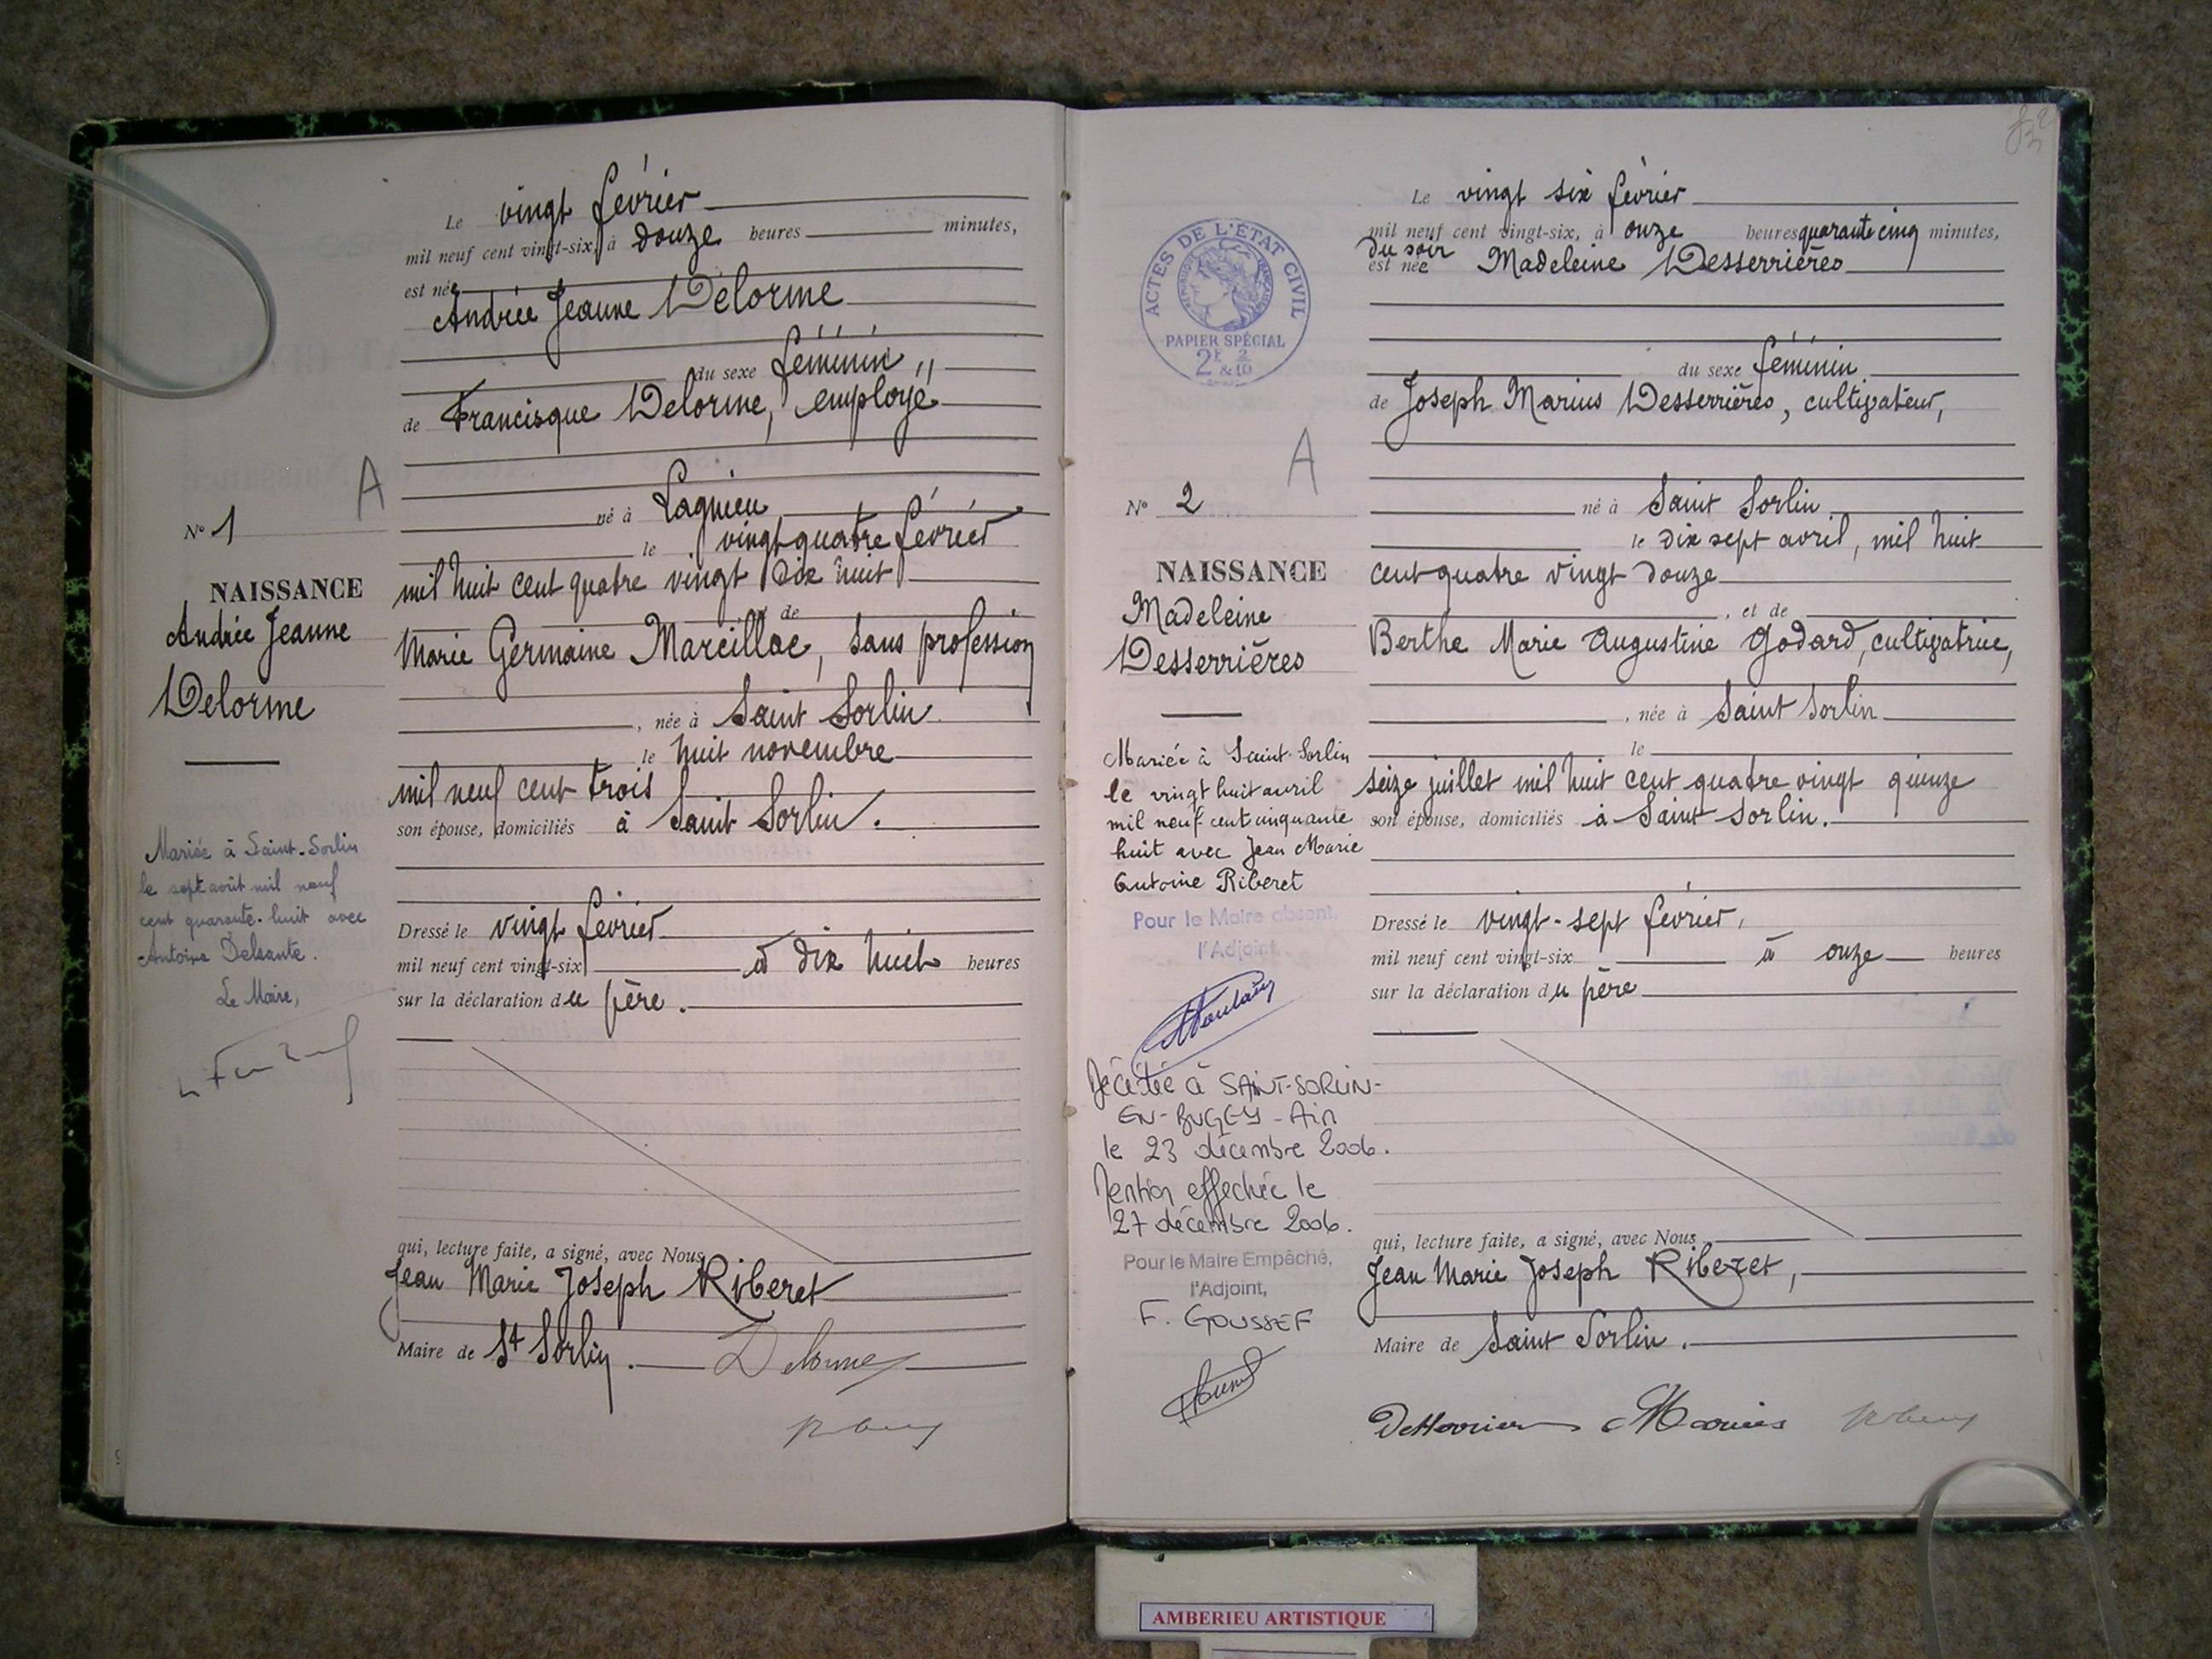 Le vingt février
mil neuf cent vingt-six, à douze heures minutes,
est née
Andrée Jeanne Delorme
du sexe féminin
de Francisque Delorme, employé
né à Lagnieu
le vingt quatre février
mil huit cent quatre vingt dix huit
de
Marie Germaine Marcillac, sans profession
, née à Saint Sorlin
le huit novembre
mil neuf cent trois
son épouse, domiciliés à Saint Sorlin.
Dressé le vingt février
mil neuf cent vingt-six à dix huit heures
sur la déclaration du père.
qui, lecture faite, a signé, avec Nous
Jean Marie Joseph Riberet
Maire de St Sorlin. Delorme
A
N° 1
NAISSANCE
Andrée Jeanne
Delorme
Mariée à Saint-Sorlin
le sept août mil neuf
cent quarante-huit avec
Antoine Delsante.
Le Maire,
Le vingt six février
mil neuf cent vingt-six, à onze heures quarante cinq minutes,
du soir
est née Madeleine Desserrières
du sexe féminin
de Joseph Marius Desserrières, cultivateur,
né à Saint Sorlin
le dix sept avril, mil huit
cent quatre vingt douze
, et de
Berthe Marie Augustine Godard, cultivatrice,
, née à Saint Sorlin
le
seize juillet mil huit cent quatre vingt quinze
son épouse, domiciliés à Saint Sorlin.
Dressé le vingt-sept février,
mil neuf cent vingt-six à onze heures
sur la déclaration du père
qui, lecture faite, a signé, avec Nous
Jean Marie Joseph Riberet,
Maire de Saint Sorlin.
Desserrières Marius
ACTES DE L'ÉTAT CIVIL
RÉPUBLIQUE FRANÇAISE
PAPIER SPÉCIAL
2F & 2/10
A
N° 2
NAISSANCE
Madeleine
Desserrières
Mariée à Saint-Sorlin
le vingt huit avril
mil neuf cent cinquante
huit avec Jean Marie
Antoine Riberet
Pour le Maire absent,
l'Adjoint,
Décédée à SAINT-SORLIN-
EN-BUGEY - Ain
le 23 décembre 2006.
Mention effectuée le
27 décembre 2006.
Pour le Maire Empêché,
l'Adjoint,
F. GOUSSEF
AMBERIEU ARTISTIQUE